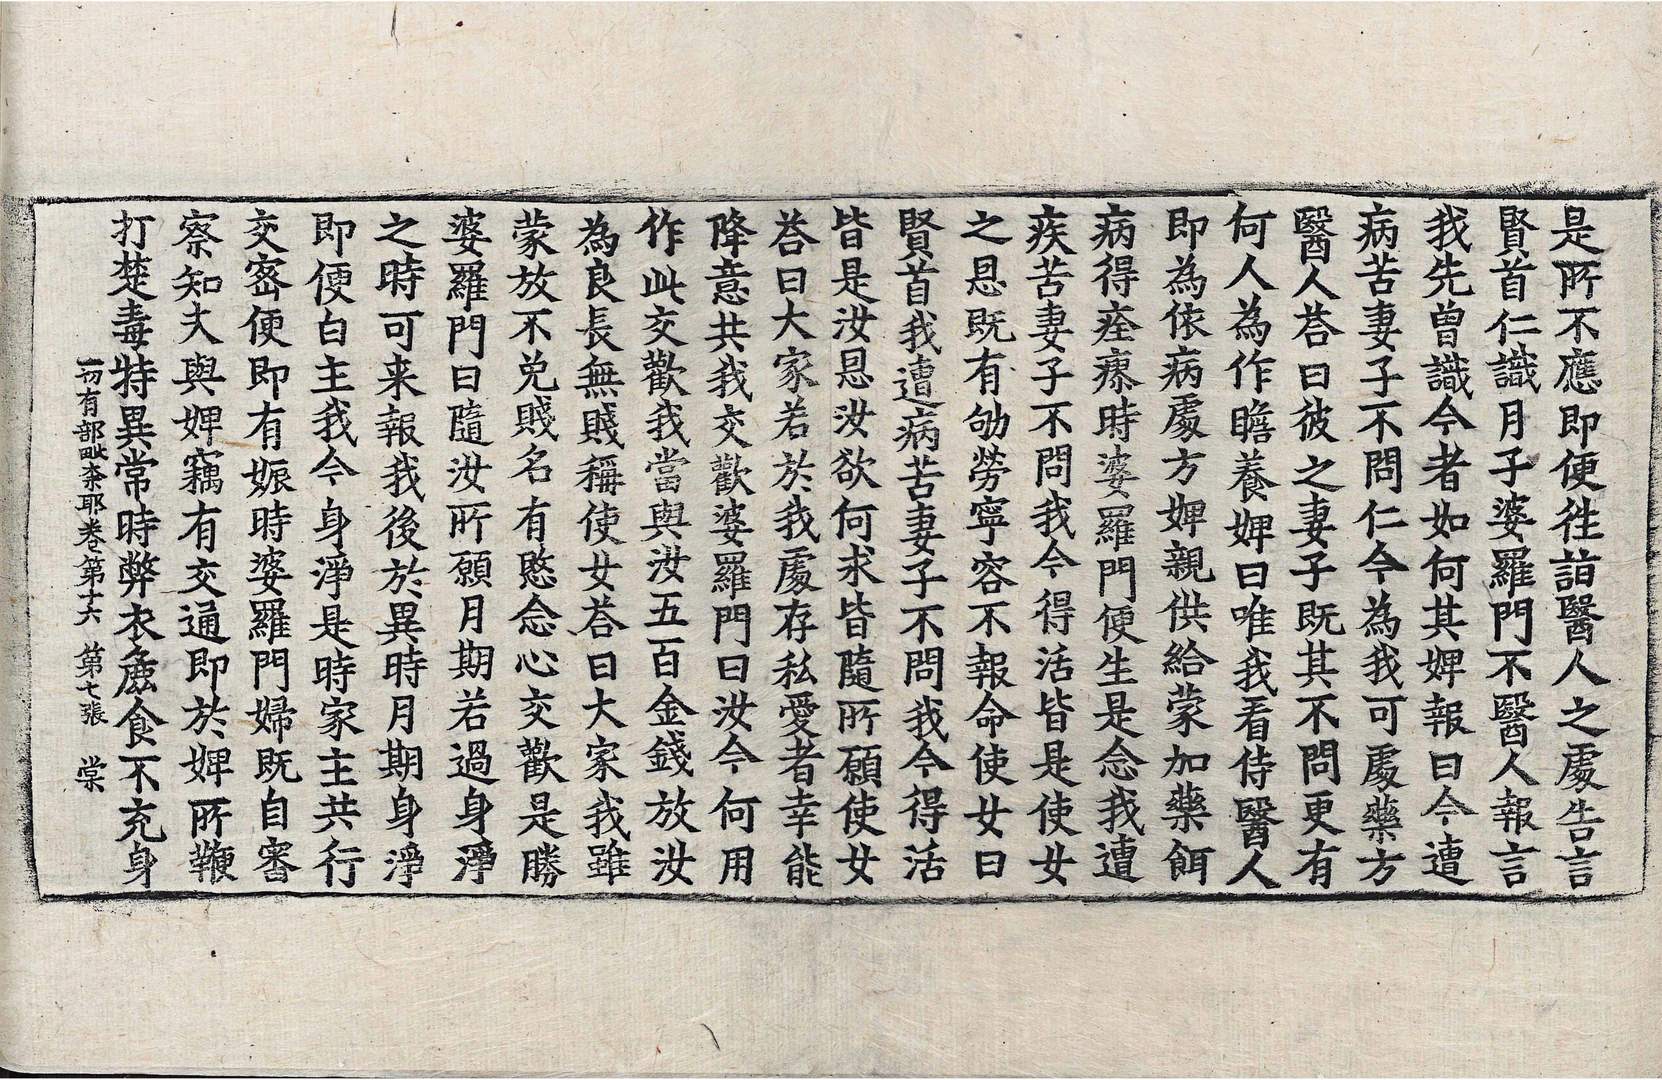 是所不應即便往詣醫人之處告言
賢首仁識月子婆羅門不醫人報言
我先曾識今者如何其婢報曰今遭
病苦妻子不問仁今為我可處藥方
醫人荅曰彼之妻子既其不問更有
何人為作瞻養婢曰唯我看侍醫人
即為依病處方婢親供給蒙加藥餌
病得痊瘳時婆羅門便生是念我遭
疾苦妻子不問我今得活皆是使女
之恩既有劬勞寧容不報命使女曰
賢首我遭病苦妻子不問我今得活
皆是汝恩汝欲何求皆隨所願使女
荅曰大家若於我處存私愛者幸能
降意共我交歡婆羅門曰汝今何用
作此交歡我當與汝五百金錢放汝
為良長無賤稱使女荅曰大家我雖
蒙放不免賤名有愍念心交歡是勝
婆羅門曰隨汝所願月期若過身淨
之時可来報我後於異時月期身淨
即便白主我今身淨是時家主共行
交密便即有娠時婆羅門婦既自審
察知夫與婢竊有交通即於婢所鞭
打楚毒特異常時弊衣麁食不充身
一切有部毗柰耶卷第十六 第七張 棠